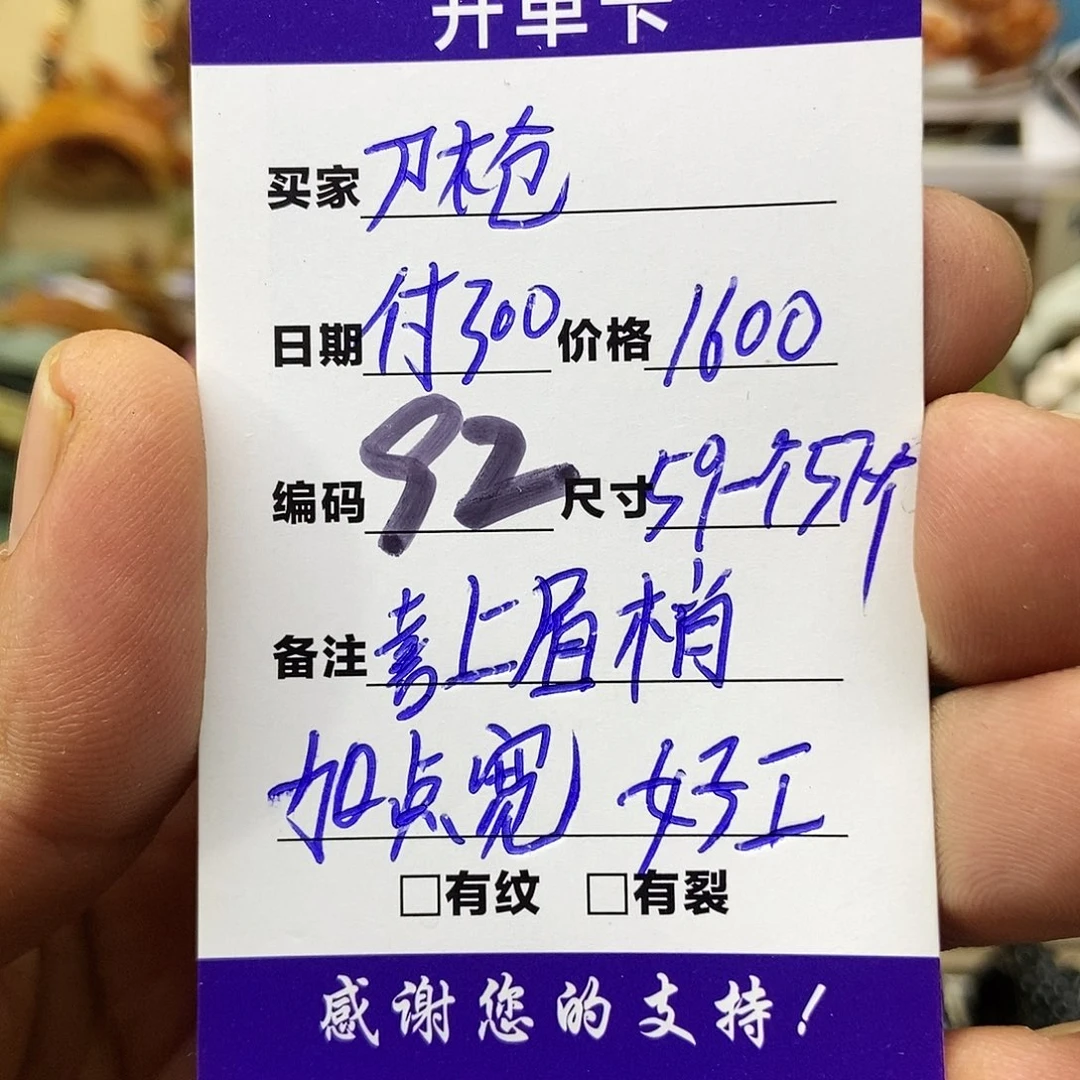 开单卡
买家 刀枪
日期 付300 价格 1600
编码 92 尺寸 59-
备注 喜上眉梢
加点宽 好工
□有纹 □有裂
感谢您的支持！